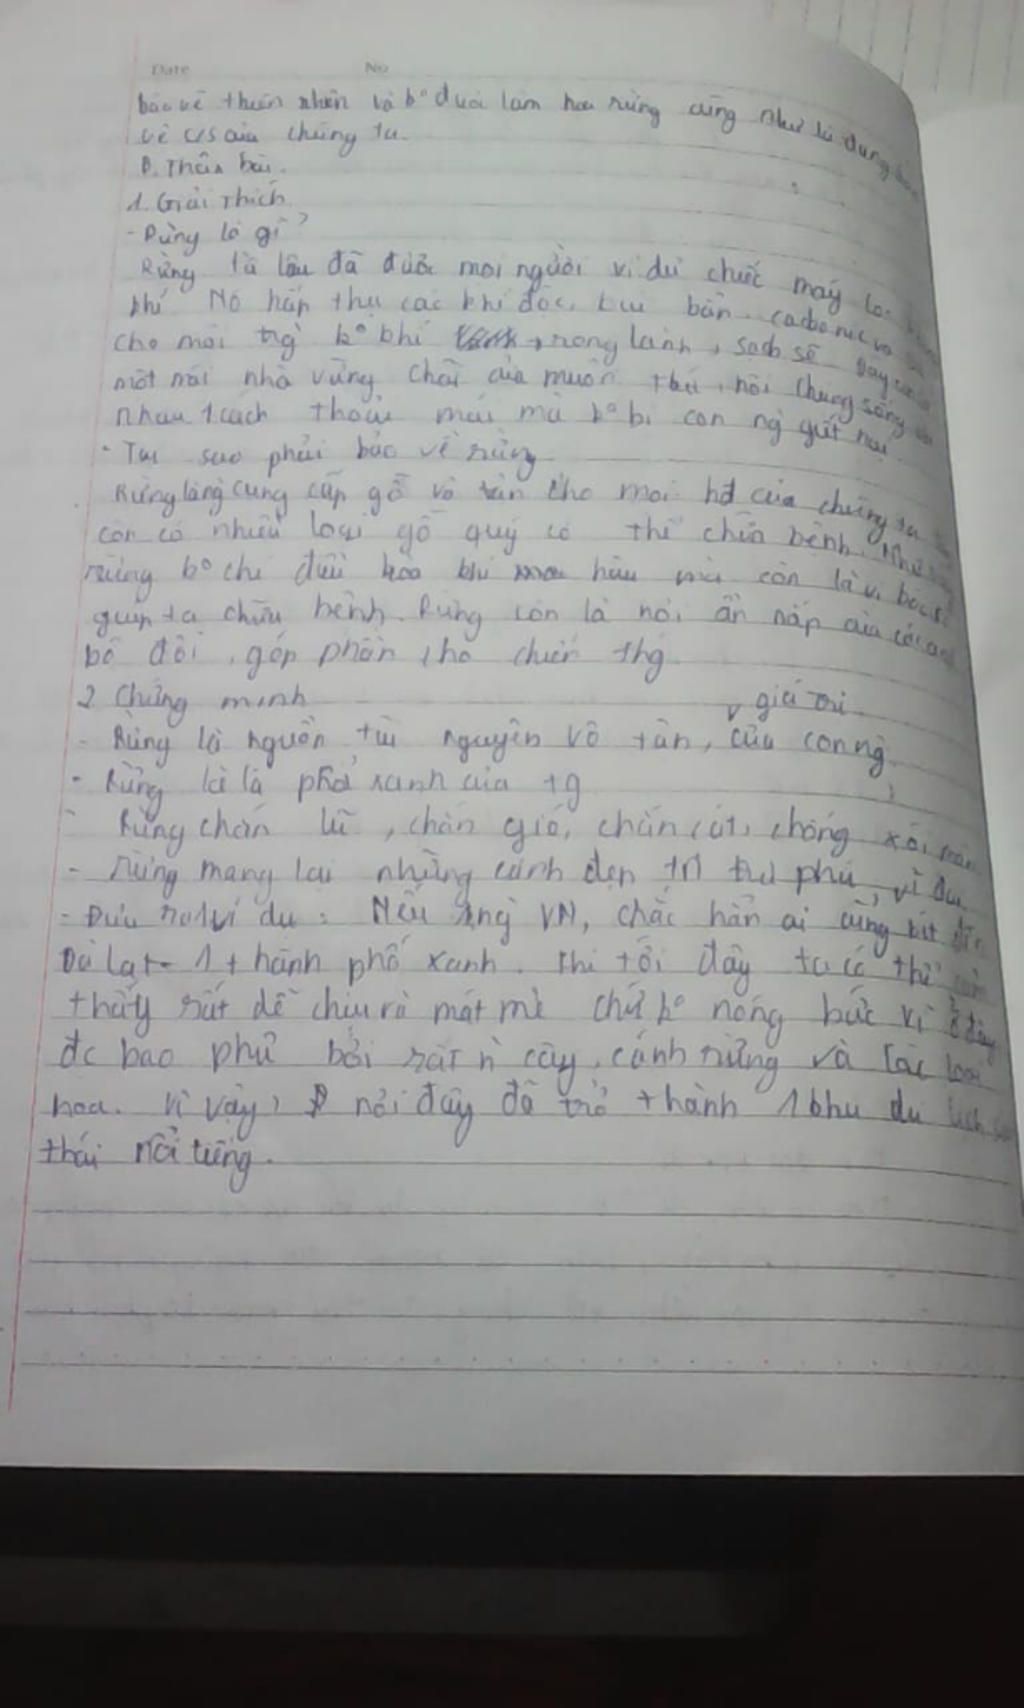 Date No
bảo vệ thiên nhiên và ko được làm hại rừng cũng như là đang
về c/s của chúng ta.
B. Thân bài.
1. Giải thích
- Rừng là gì?
Rừng từ lâu đã được mọi người ví dụ chiếc máy lọc
khí. Nó hấp thụ các khí độc, bụi bẩn, carbonic và
cho môi trg ko khí trong lành, sạch sẽ
một nơi nhà vững chãi của muôn thú, nơi chung sống
nhau 1 cách thoải mái mà ko bị con ng giết hại.
- Tại sao phải bảo vệ rừng
Rừng cung cấp gỗ vô tận cho mọi hđ của chúng ta
còn có nhiều loại gỗ quý có thể chữa bệnh. Như
rừng ko chỉ điều hoà khí hậu mà còn là vị bác sĩ
giúp ta chữa bệnh. Rừng còn là nơi ẩn nấp của các anh
bộ đội, góp phần cho chiến thg
2 Chứng minh
- Rừng là nguồn tài nguyên vô tận, giá trị của con ng
- Rừng là lá phổi xanh của tg
- Rừng chắn lũ, chắn gió, chắn cát, chống xói mòn
- rừng mang lại những cảnh đẹp trù phú, ví dụ
- Đưa ra 1 ví dụ: Nếu là ng VN, chắc hẳn ai cũng bít đến
Đà Lạt - 1 thành phố xanh. Khi tới đây ta có thể cảm
thấy rất dễ chịu và mát mẻ chứ ko nóng bức vì ở đây
đc bao phủ bởi rất n cây, cánh rừng và các loài
hoa. Vì vậy, nơi đây đã trở thành 1 khu du lịch sinh
thái nổi tiếng.